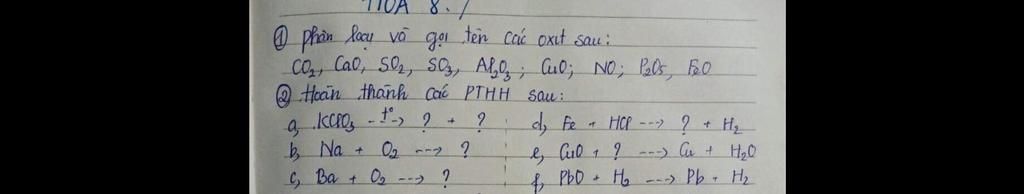 HÓA 8.1
① Phân loại và gọi tên các oxit sau:
CO₂, CaO, SO₂, SO₃, Al₂O₃; CuO; NO; P₂O₅, F₂O
② Hoàn thành các PTHH sau:
a, KClO₃ -t°-> ? + ? d, Fe + HCl ---> ? + H₂
b, Na + O₂ ---> ? e, CuO + ? ---> Cu + H₂O
c, Ba + O₂ ---> ? f, PbO + H₂ ---> Pb + H₂